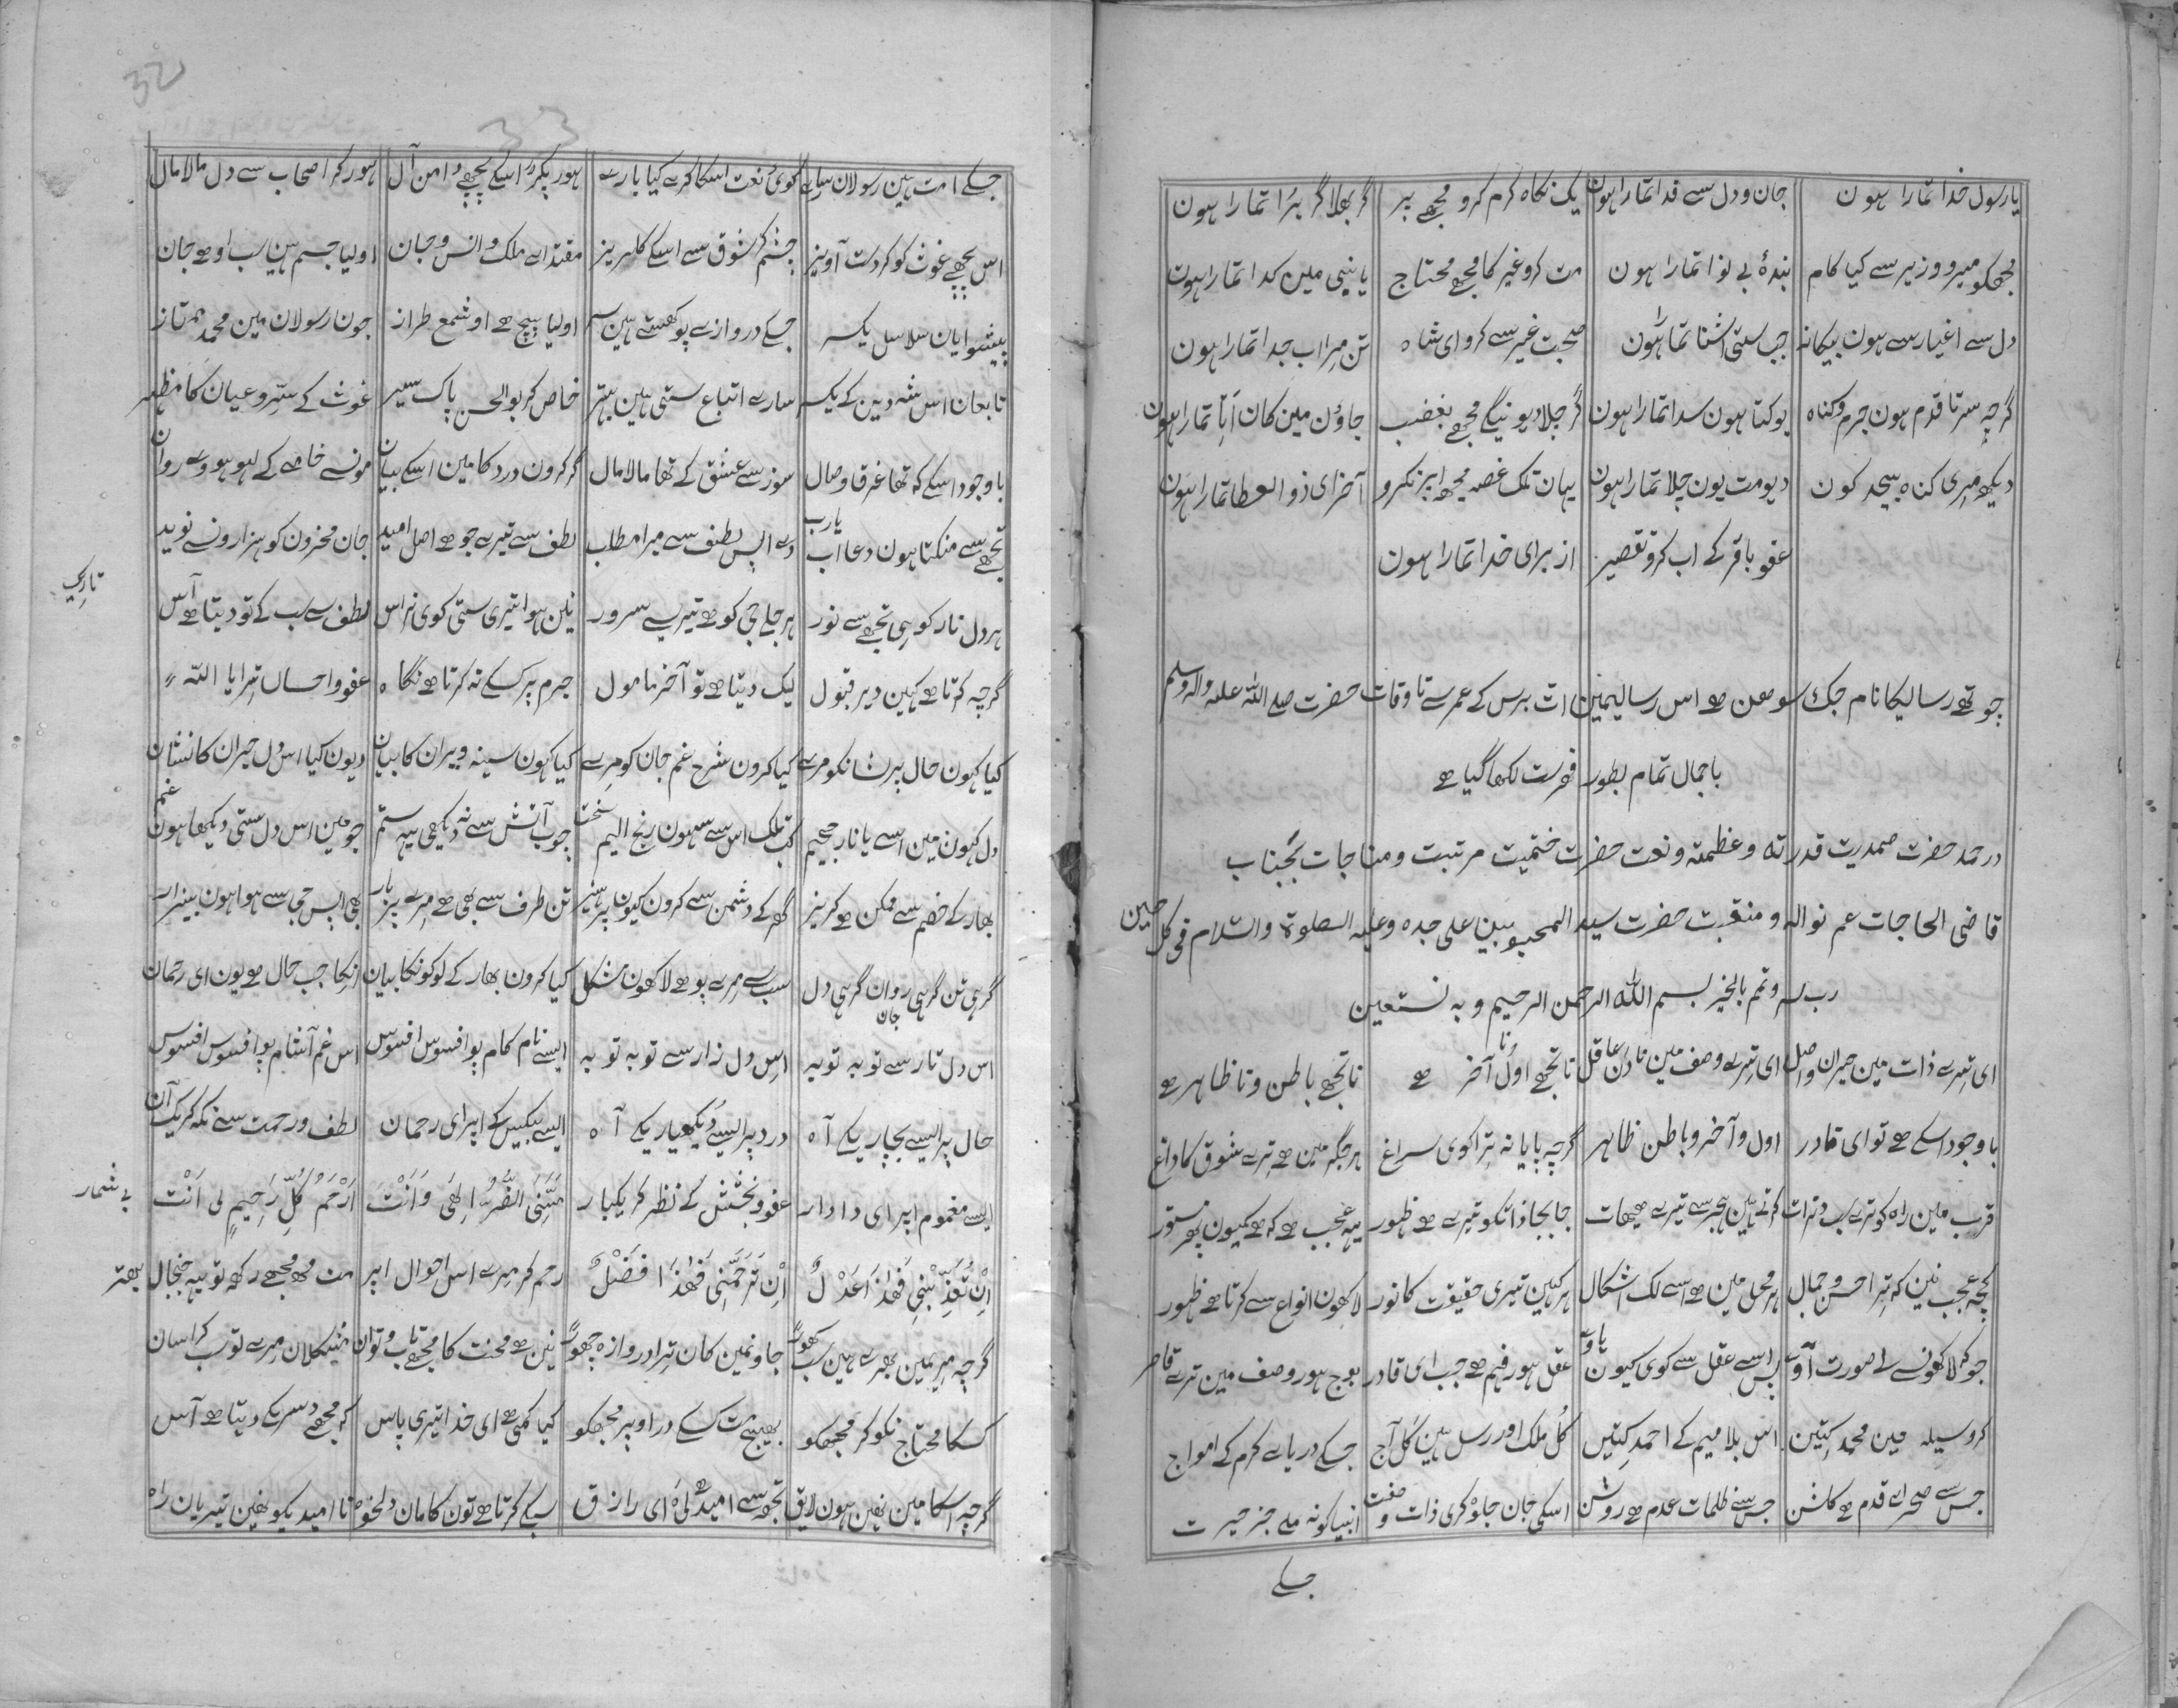 یا رسول خدا تمارا ہون جان و دل سے فدا تمارا ہون یک نگاہ کرم کرو مجھے پر گر بھلا گر برُا تمارا ہون
مجھکو میر و وزیر سے کیا کام بندۂ بے نوا تمارا ہون مت کرو غیر کا مجھے محتاج یا نبی مین کدا تمارا ہون
دل سے اغیار سے ہون بیکانہ جب ستی آشنا تمارا ہُون صحبت غیر سے کرو ای شاہ تن مِرا اب جدا تمارا ہون
گرچہ سرتا قدم ہون جرم و کناہ بوکتا ہون سدا تمارا ہون گر جلا دیونیگے مجھے بغضب جاؤن مین کان اَبآ تمارا ہون
دیکھ مِری کناہ بیحد کون دیومت یون جِلا تمارا ہون یہان تلک غصہ مجھ اپر نکرو آخر ای ذو العطا تمارا ہون
عفو باقر کے اب کرو تقصیر از برای خدا تمارا ہون
چوتھے رسالیکا نام جگ سوھن ھے اس رسالیمین ات برس کے عمر سے تا وفات حضرت صلے اللہ علیہ والہ وسلم
باجمال تمام بطور فہرست لکھا گیا ھے
در حمد حضرت صمدیت قدرتہ و عظمتہ و نعت حضرت ختمیت مرتبت و مناجات بجناب
قاضی الحاجات عم نوالہ و منقبت حضرت سید المحبوبین علی جدہ و علیہ الصلوۃ والسّلام فی کل حین
رب یسر و تمم بالخیر بسم اللہ الرحمن الرحیم و بہ نستعین
ای تیرے ذات مین حیران واصل ای تِیرے وصف مین نادان عاقل تا تجھے اوّل و نا آخر ھے نا تجھے باطن و نا ظاہر ھے
با وجود اسکے ھے تو ای قادر اول و آخر و باطن ظاہر گرچہ پایا نہ تِرا کوی سراغ ہر جگہ مین ھے ترے شوق کا داغ
قرب مین راہ کو ترے سب دنرات کرتے ہین ہجر سے تیرے ھیھات جابجا ذاتکو تیرے ھے ظہور یہہ عجب ھے کہ ھے کیون پھر مستور
کچھ عجب نین کہ تِرا حسن و جمال ہر محل مین ھے اسے لک اشکال ہر کہین تیری حقیقت کا نور لاکھون انواع سے کرتا ھے ظہور
جو کہ لاکھون سے لے صورت آوے پس اسے عقل سے کوی کیون پاوے عقل ہور فہم ھے جب ای قادر بوج ہور وصف مین ترے قاصر
کر وسیلہ مین محمد کیتین اس بلا میم کے احمد کیتین کُل ملک اور رسل ہین کُل آج جسکے دریاے کرم کے امواج
جس سے صحراے قدم ھے گلشن جس سے ظلمات عدم ھے روشن اسکی جان جلوہ کری ذات و صفت انبیا کو نہ ملے جز حیرت
جسکے
32
33
جسکے امت ہین رسولان سارے کوی نعت اسکا کرے کیا بارے ہور پکڑ اسکے پچھے دامن آل ہور کر اصحاب سے دل مالا مال
اس پچھے غوث کو کر دست آویز چشم کر شوق سے اسکے کلریز مقتداے ملک و انس و جان اولیا جسم ہین سب او ھے جان
پیشوایان سلاسل یکسر جسکے دروازے پو گھستے ہین سر اولیا بیچ ھے او شمع طراز جون رسولان مین محمد ممتاز
تابعان اس شہ دین کے یکسر سارے اتباع ستی ہین بہتر خاص کر بوالحسن پاک سیر غوث کے سِرّ و عیان کا مظہر
با وجود اسکے کہ تھا غرق وصال سوز سے عشق کے تھا مالامال گر کرون درد کا مین اسکے بیان مونسے خامے کے لہو ہووے روان
تجھ سے منکتا ہون دعا اب یارب دے اپس لطف سے میرا مطلب لطف سے تیرے جو ھے اصل امید جان مخزون کو ہزارونسے نوید
ہر دل نار کو ہی تجھسے نور ہر جلے جی کو ھے تیرسے سرور نین ہوا تیری ستی کوی نراس لطف سے سب کے تو دیتا ھے آس
تاریک
گرچہ کرتا ھے کہین دیر قبول لیک دیتا ھے تو آخر مامول جرم پر کسکے نہ کرتا ھے نگاہ عفو و احسان تیرا یا اللہ
کیا کہون حال پریشانکو مرے کیا کرون شرح غم جان کو مرے کیا کہون سینہ ویران کا بیان دیون کیا اس دل حیران کا نشان
دل کہون مین اسے یا نار جحیم کب تلک اس سے سہون رنج الیم سخت جوب آتش سے نہ دیکھی یہہ ستم جو مین اس دل ستی دیکھا ہون غم
بھار کے خصم سے ممکن ھے کریز گھر کے دشمن سے کرون کیون پرہیز تن طرف سے بھی ھے مِرے پر بار بھی اپس جی سے ہوا ہون بیزار
گر ہی تن گر ہی روان گر ہی دل جان سب سے مرے پو ھے لاکھون مشکل کیا کرون بھار کے لوکونکا بیان انکا جب حال ھے یون ای رحمان
اس دل تار سے توبہ توبہ اس دل زار سے توبہ توبہ ایسے نا کام پو افسوس افسوس اس غم آشام پو افسوس افسوس
حال پر ایسے بچاریکے آہ درد پر ایسے دُکھیاریکے آہ ایسے بیکس کے اپر ای رحمان لطف و رحمت سے نکہ کر یک آن
ایسے مغموم اپر ای دادار عفو و بخشش کے نظر کر یکبار مَسَّنِیَ الضُّرُّ اِلٰھی وَ اَنْتَ اَرْحَمُ کُلِّ رَحِیمٍ لی اَنْتَ
بے شمار
اِنْ تُعَذِّبْنِی فَھٰذَا عَدْلٌ اِنْ تَرَحَّمْنِی فَھٰذَا فَضْلٌ رحم کر میرے اس احوال اپر مت مجھے رکھ تو یہہ جنجال بھیتر
گرچہ میریمین بھرے ہین سب کھوٹ جاونمین کان تِرا دروازہ چھوٹ نین ھے محنت کا مجھے تاب و توان مشکلان مرے تو سب کر اسان
کسکا محتاج نکو کر مجھکو بھیج مت کسکے در اوپر مجھکو کیا کمی ھے ای خدا تیری پاس کہ مجھے دسریکے دیتا ھے آس
گرچہ اسکا مین نھین ہون لایق تجھ سے امید ھے لی ای رازق سبکے کرتا ھے تون کامان دلخوہ نا امید یکو نھین تیریان راہ